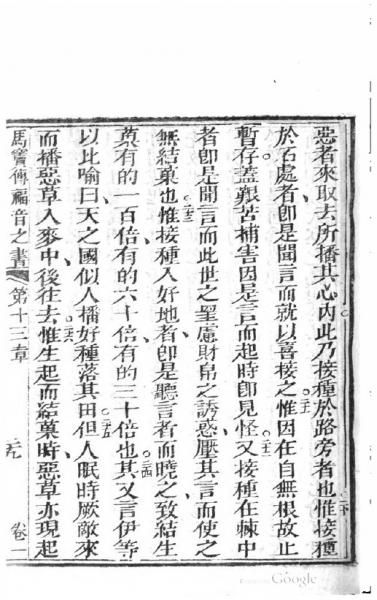 惡者來取去所播其心內此乃接種於路旁者也惟接種
二十
於石處者卽是聞言而就以喜接之惟因在自無根故止
二十一
暫存蓋艱苦捕害因是言而起時卽見怪又接種在棘中
二十二
者卽是聞言而此世之罣慮財帛之誘惑壓其言而使之
二十三
無結菓也惟接種入好地者卽是聽言者而曉之致結生
菓有的一百倍有的六十倍有的三十倍也其又言伊等
二十四
以此喻曰天之國似人播好種落其田但人眠時厥敵來
二十五
而播惡草入麥中後往去惟生起而結菓時惡草亦現起
二十六
馬竇傳福音之書 第十三章 卷一
Google